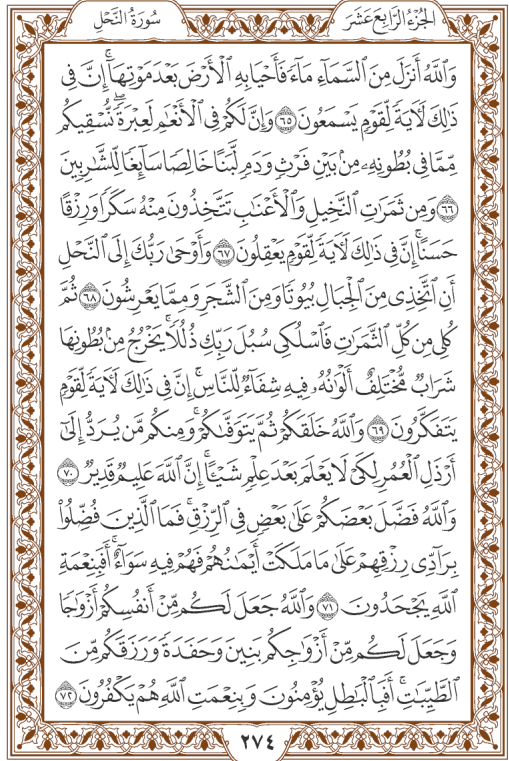 الجُزْءُ الرَّابِعَ عَشَرَ
سُورَةُ النَّحْلِ
وَٱللَّهُ أَنزَلَ مِنَ ٱلسَّمَآءِ مَآءً فَأَحْيَا بِهِ ٱلْأَرْضَ بَعْدَ مَوْتِهَآۚ إِنَّ فِى
ذَٰلِكَ لَءَايَةً لِّقَوْمٍ يَسْمَعُونَ ٦٥ وَإِنَّ لَكُمْ فِى ٱلْأَنْعَٰمِ لَعِبْرَةًۖ نُّسْقِيكُم
مِّمَّا فِى بُطُونِهِۦ مِنۢ بَيْنِ فَرْثٍ وَدَمٍ لَّبَنًا خَالِصًا سَآئِغًا لِّلشَّٰرِبِينَ
٦٦ وَمِن ثَمَرَٰتِ ٱلنَّخِيلِ وَٱلْأَعْنَٰبِ تَتَّخِذُونَ مِنْهُ سَكَرًا وَرِزْقًا
حَسَنًاۗ إِنَّ فِى ذَٰلِكَ لَءَايَةً لِّقَوْمٍ يَعْقِلُونَ ٦٧ وَأَوْحَىٰ رَبُّكَ إِلَى ٱلنَّحْلِ
أَنِ ٱتَّخِذِى مِنَ ٱلْجِبَالِ بُيُوتًا وَمِنَ ٱلشَّجَرِ وَمِمَّا يَعْرِشُونَ ٦٨ ثُمَّ
كُلِى مِن كُلِّ ٱلثَّمَرَٰتِ فَٱسْلُكِى سُبُلَ رَبِّكِ ذُلُلًاۚ يَخْرُجُ مِنۢ بُطُونِهَا
شَرَابٌ مُّخْتَلِفٌ أَلْوَٰنُهُۥ فِيهِ شِفَآءٌ لِّلنَّاسِۚ إِنَّ فِى ذَٰلِكَ لَءَايَةً لِّقَوْمٍ
يَتَفَكَّرُونَ ٦٩ وَٱللَّهُ خَلَقَكُمْ ثُمَّ يَتَوَفَّىٰكُمْۚ وَمِنكُم مَّن يُرَدُّ إِلَىٰٓ
أَرْذَلِ ٱلْعُمُرِ لِكَىْ لَا يَعْلَمَ بَعْدَ عِلْمٍ شَيْـًٔاۚ إِنَّ ٱللَّهَ عَلِيمٌ قَدِيرٌ ٧٠
وَٱللَّهُ فَضَّلَ بَعْضَكُمْ عَلَىٰ بَعْضٍ فِى ٱلرِّزْقِۚ فَمَا ٱلَّذِينَ فُضِّلُوا۟
بِرَآدِّى رِزْقِهِمْ عَلَىٰ مَا مَلَكَتْ أَيْمَٰنُهُمْ فَهُمْ فِيهِ سَوَآءٌۚ أَفَبِنِعْمَةِ
ٱللَّهِ يَجْحَدُونَ ٧١ وَٱللَّهُ جَعَلَ لَكُم مِّنْ أَنفُسِكُمْ أَزْوَٰجًا
وَجَعَلَ لَكُم مِّنْ أَزْوَٰجِكُم بَنِينَ وَحَفَدَةً وَرَزَقَكُم مِّنَ
ٱلطَّيِّبَٰتِۚ أَفَبِٱلْبَٰطِلِ يُؤْمِنُونَ وَبِنِعْمَتِ ٱللَّهِ هُمْ يَكْفُرُونَ ٧٢
٢٧٤